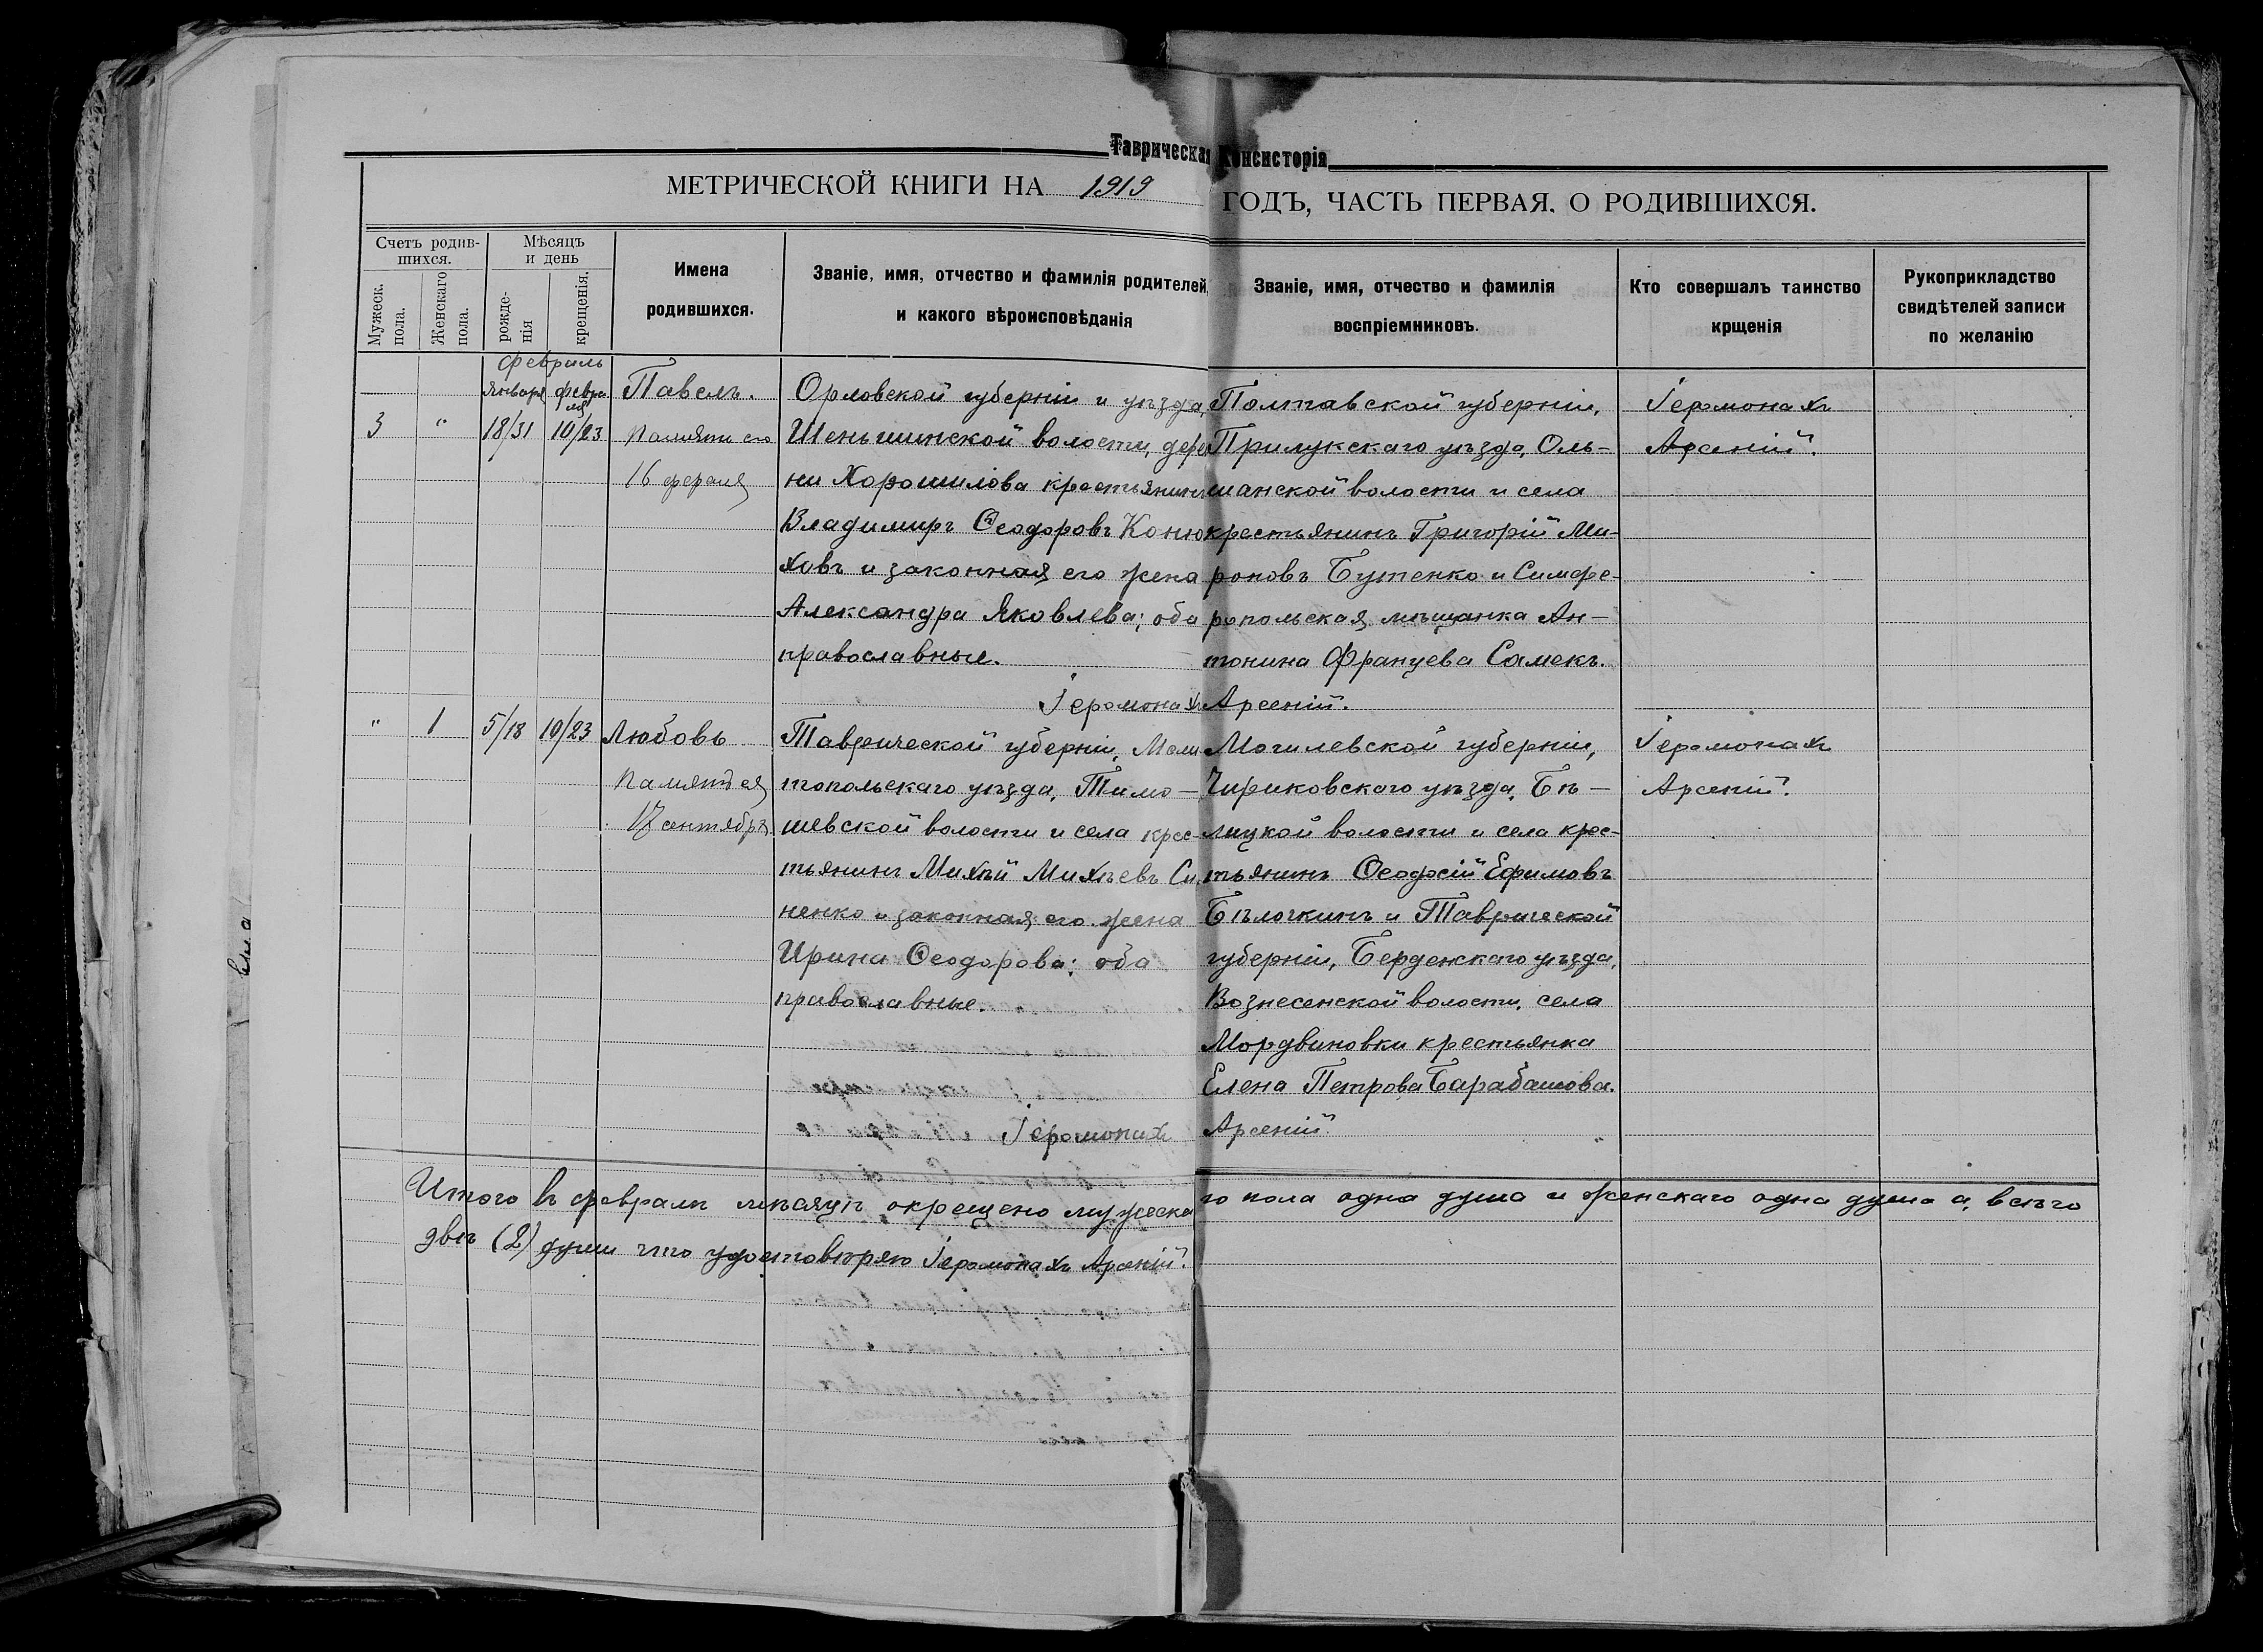 Таврическая Консисторія
МЕТРИЧЕСКОЙ КНИГИ НА 1919 ГОДЪ, ЧАСТЬ ПЕРВАЯ, О РОДИВШИХСЯ.
Счетъ родив-
шихся.
Мужеск.
пола.
Женскаго
пола.
Мѣсяцъ
и день
рожде-
нія
крещенія.
Имена
родившихся.
Званіе, имя, отчество и фамилія родителей,
и какого вѣроисповѣданія
Званіе, имя, отчество и фамилія
воспріемниковъ.
Кто совершалъ таинство
крщенія
Рукоприкладство
свидѣтелей записи
по желанію
Февраль
Января
Февра
ля
3
"
18/31
10/23
Павелъ.
Памяти его
16 фераля
Орловской губерніи и уѣзда,
Шеньшинской волости, дерев
ни Хорошилова крестьянинъ
Владимиръ Ѳеодоровъ Коню
ховъ и законная его жена
Александра Яковлева; оба
православные.
Полтавской губерніи,
Прилукскаго уѣзда, Оль-
шанской волости и села
крестьянинъ Григорій Ми-
роновъ Бутенко и Симфе-
ропольская мѣщанка Ан-
тонина Францева Самекъ.
Іеромонахъ
Арсеній.
Іеромонахъ Арсеній.
"
1
5/18
10/23
Любовь
Память ея
17 сентября
Таврической губерніи, Мели
топольскаго уѣзда, Тимо-
шевской волости и села крес-
тьянинъ Михѣй Михѣевъ Си
ненко и законная его жена
Ирина Ѳеодорова; оба
православные.
Могилевской губерніи,
Чириковскаго уѣзда, Бѣ-
лицкой волости и села крес-
тьянинъ Ѳеодосій Ефимовъ
Бѣлочкинъ и Таврической
губерніи, Берденскаго уѣзда,
Вознесенской волости, села
Мордвиновки крестьянка
Елена Петрова Барабашова.
Іеромонахъ
Арсеній.
Іеромонахъ Арсеній
Итого въ февралѣ мѣсяцѣ окрещено мужеска го пола одна душа и женскаго одна душа а, всѣго
двѣ (2) души что удостовѣряю Іеромонахъ Арсеній.